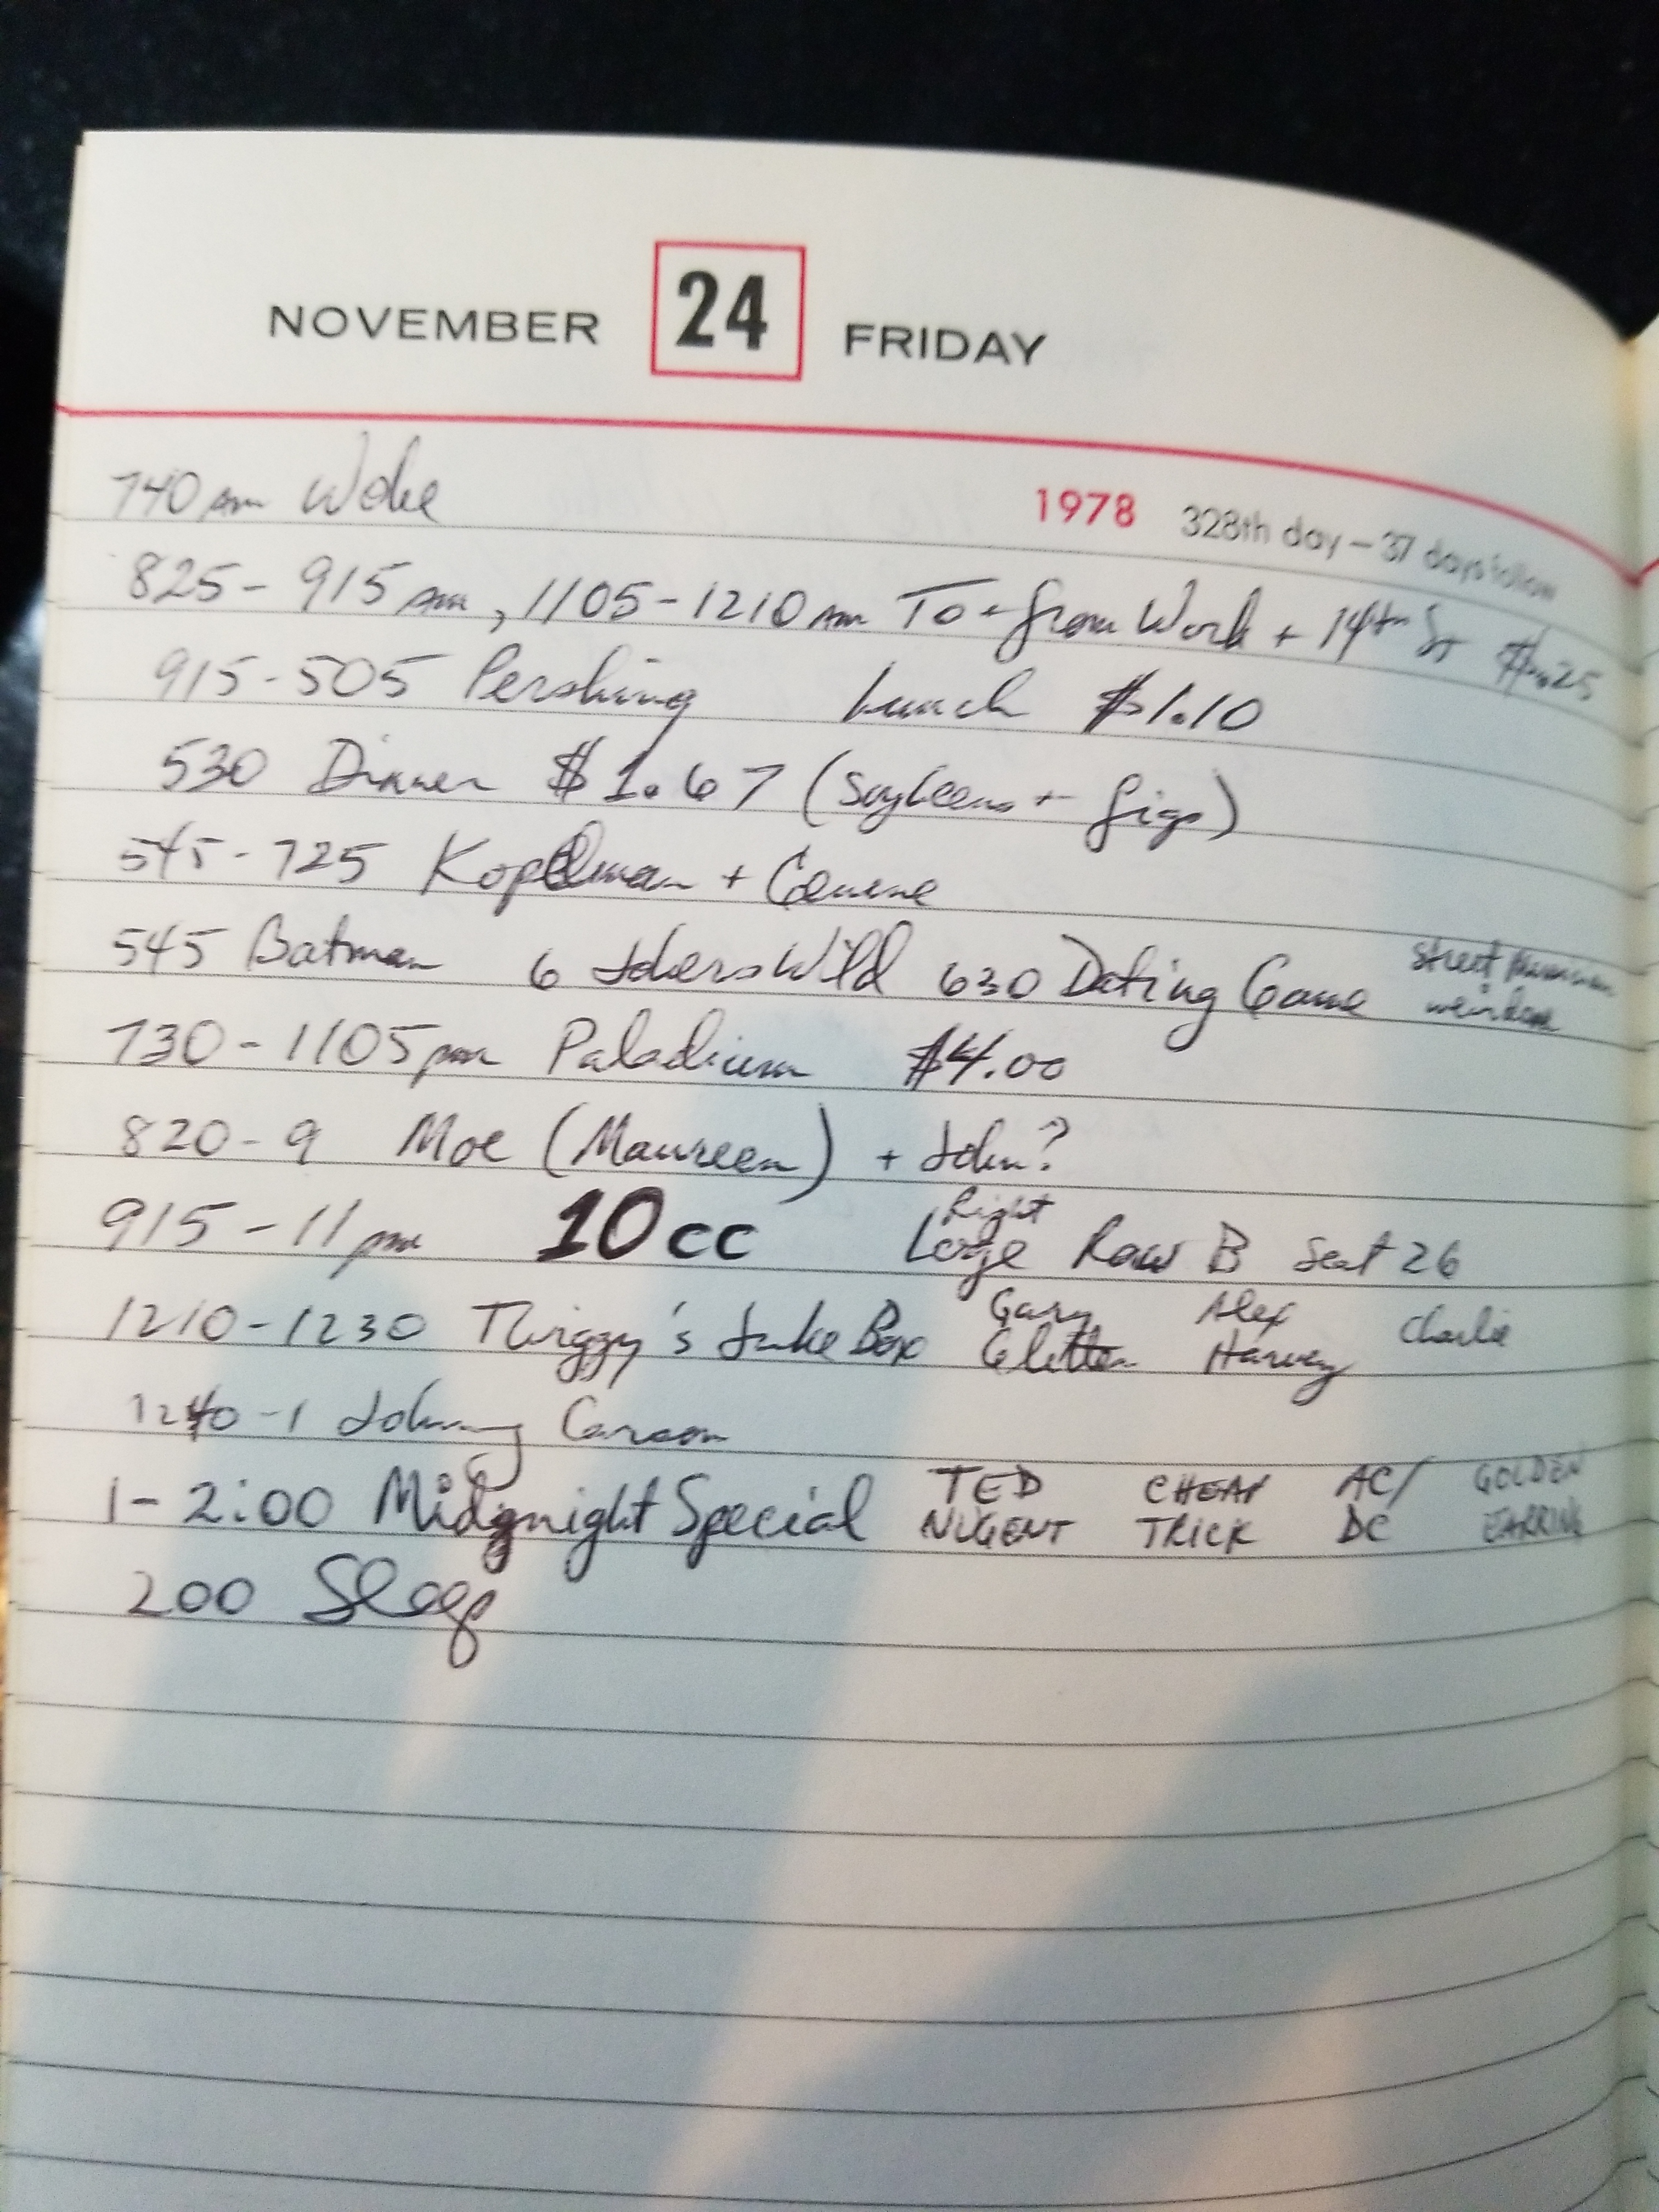 NOVEMBER 24 FRIDAY
740 am Woke
1978 328th day – 37 days follow
825 - 915 am, 1105 - 1210 am To + from Work + 14th St $.25
915 - 505 Pershing Lunch $1.10
530 Dinner $1.67 (Soybeans + figs)
545 - 725 Koppelman +
545 Batman 6 Jokers Wild 630 Dating Game Street
730 - 1105 pm Paladium $4.00
820 - 9 Moe (Maureen) + John?
915 - 11 pm 10cc Right Loge Row B Seat 26
1210 - 1230 Twiggy's Juke Box Gary Glitter Alex Harvey Charlie
1240 - 1 Johnny Carson
1 - 2:00 Midgnight Special TED NUGENT CHEAP TRICK AC/DC GOLDEN EARRING
200 Sleep